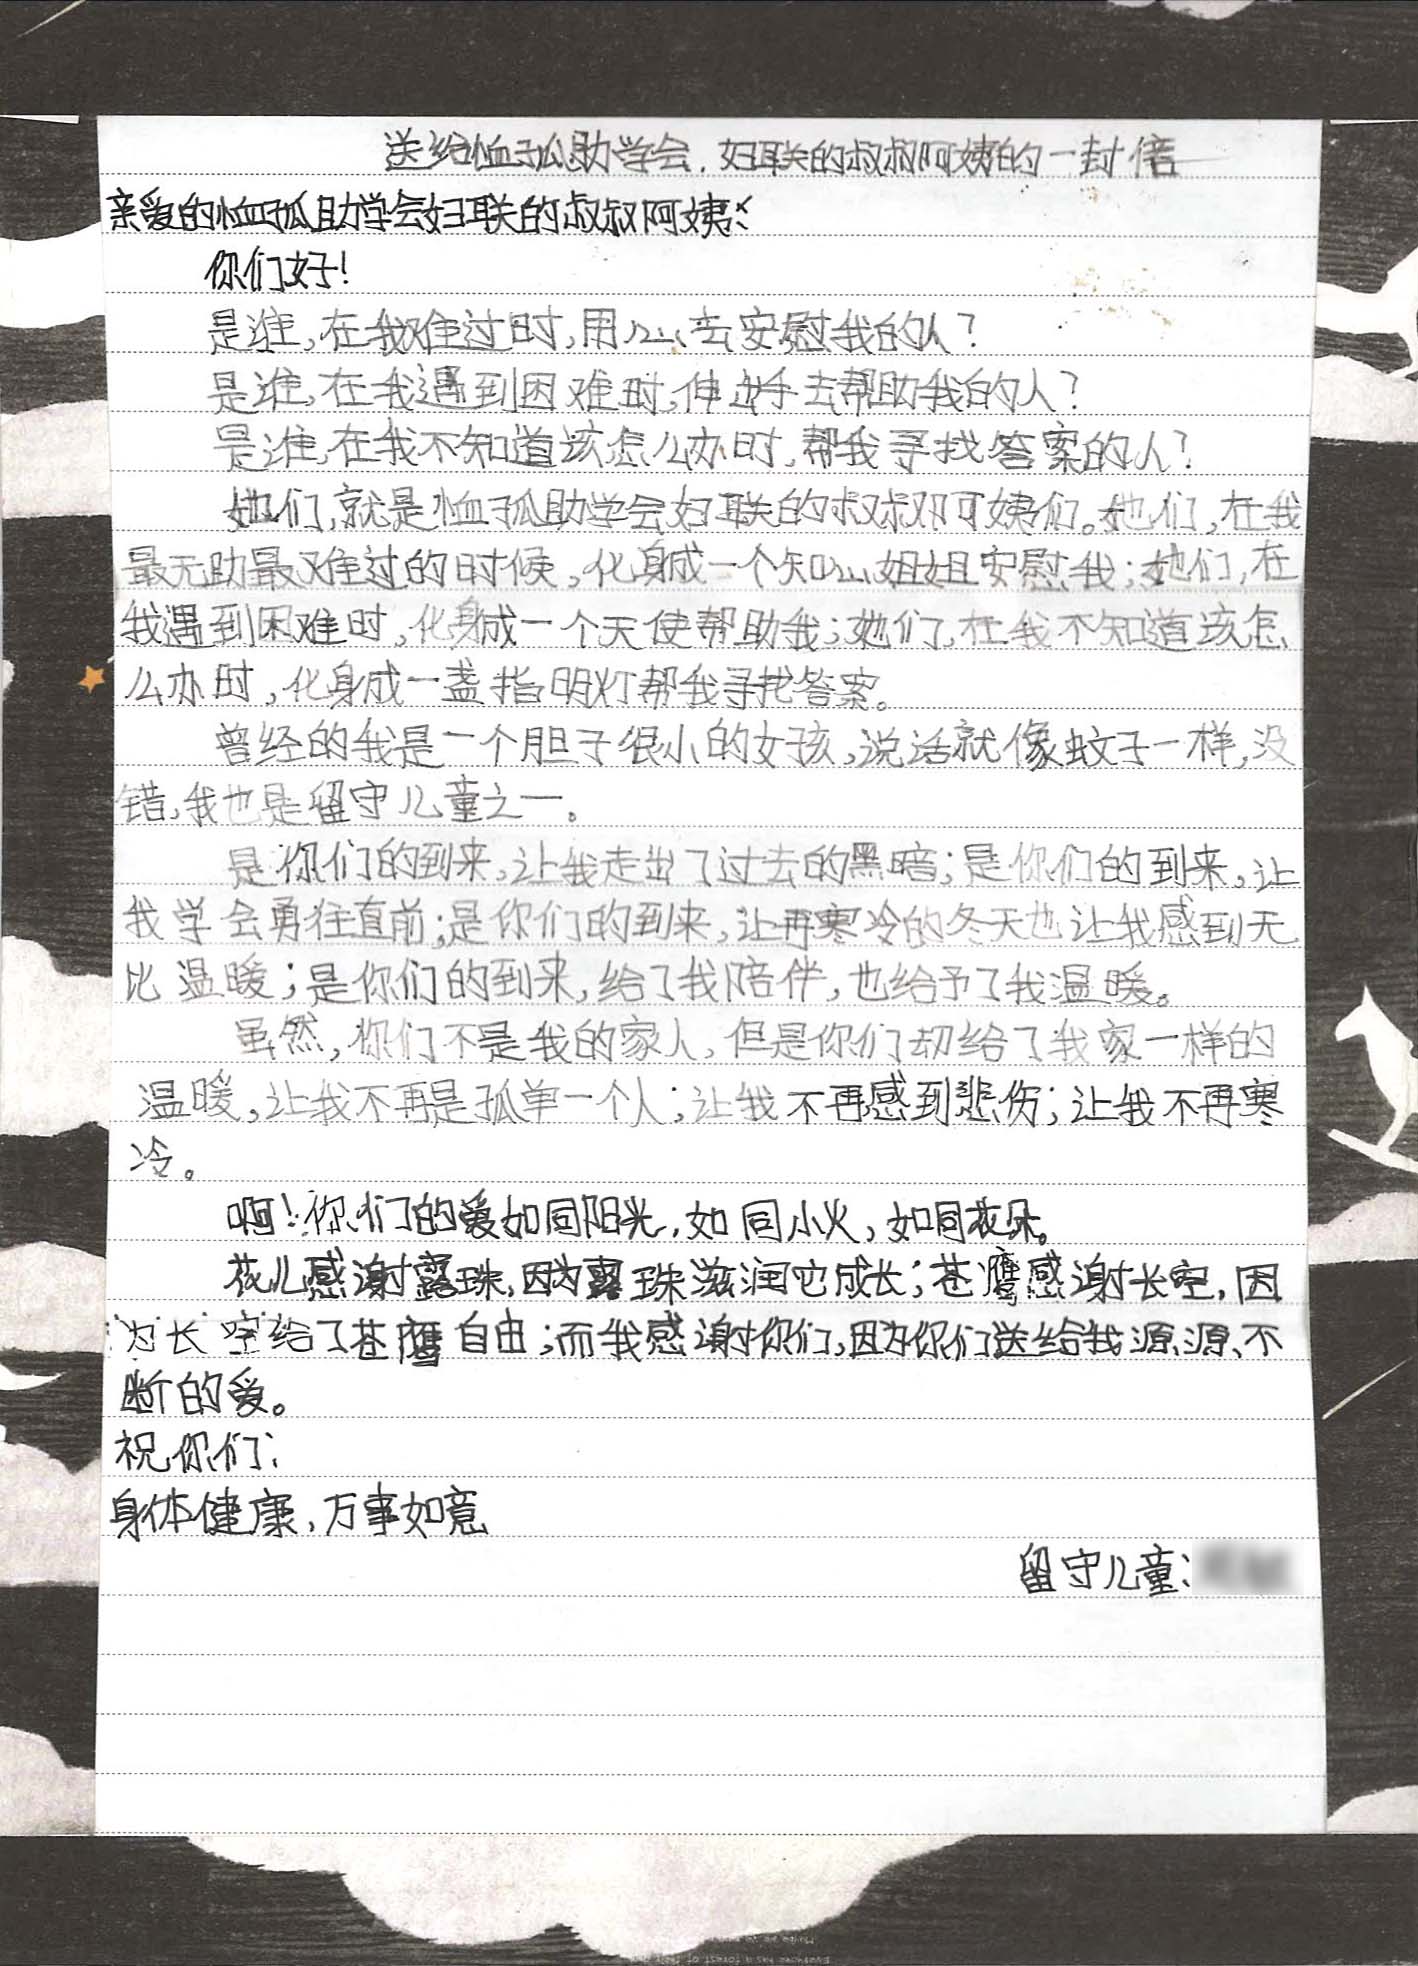 送给恤孤助学会，妇联的叔叔阿姨的一封信
亲爱的恤孤助学会妇联的叔叔阿姨：
你们好！
是谁，在我难过时，用心去安慰我的人？
是谁，在我遇到困难时，伸出手去帮助我的人？
是谁，在我不知道该怎么办时，帮我寻找答案的人？
她们，就是恤孤助学会妇联的叔叔阿姨们。她们，在我
最无助最难过的时候，化身成一个知心姐姐安慰我；她们，在
我遇到困难时，化身成一个天使帮助我；她们，在我不知道该怎
么办时，化身成一盏指明灯帮我寻找答案。
曾经的我是一个胆子很小的女孩，说话就像蚊子一样，没
错，我也是留守儿童之一。
是你们的到来，让我走出了过去的黑暗；是你们的到来，让
我学会勇往直前；是你们的到来，让再寒冷的冬天也让我感到无
比温暖；是你们的到来，给了我陪伴，也给予了我温暖。
虽然，你们不是我的家人，但是你们却给了我家一样的
温暖，让我不再是孤单一个人；让我不再感到悲伤；让我不再寒
冷。
啊！你们的爱如同阳光，如同小火，如同花朵。
花儿感谢露珠，因为露珠滋润它成长；苍鹰感谢长空，因
为长空给了苍鹰自由；而我感谢你们，因为你们送给我源源不
断的爱。
祝你们：
身体健康，万事如意
留守儿童：